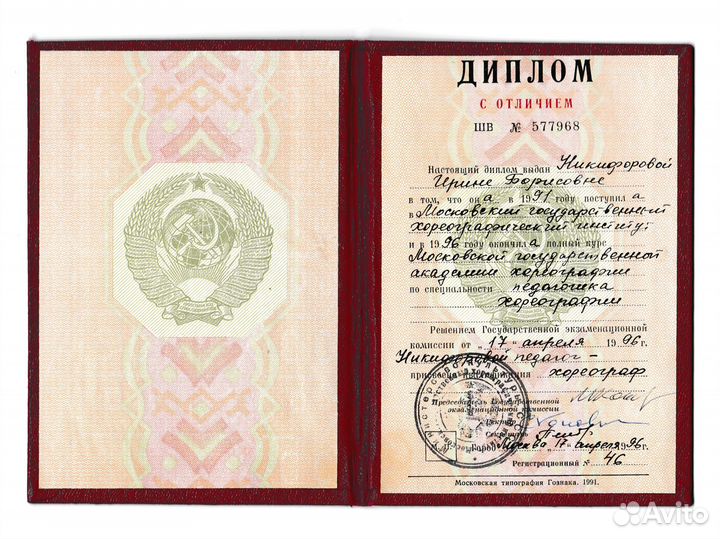 ДИПЛОМ
С ОТЛИЧИЕМ
ШВ № 577968
Настоящий диплом выдан Никифоровой
Ирине Борисовне
в том, что она в 1991 году поступила
в Московский государственный
хореографический институт
и в 1996 году окончила полный курс
Московской государственной
академии хореографии
по специальности педагогика
хореографии
Решением Государственной экзаменационной
комиссии от „17" апреля 1996 г.
Никифоровой педагог-
присвоена квалификация хореограф
Председатель Государственной
экзаменационной комиссии
Ректор
Секретарь
Город Москва 17 апреля 1996 г.
Регистрационный № 46
Московская типография Гознака. 1991.
Avito